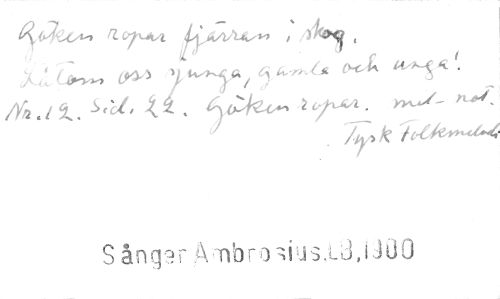 Göken ropar fjärran i skog.
Låtom oss sjunga, gamla och unga!
Nr. 12. Sid. 22. Göken ropar. mel-not.
Tysk Folkmelodi
Sånger Ambrosius.LB,1900